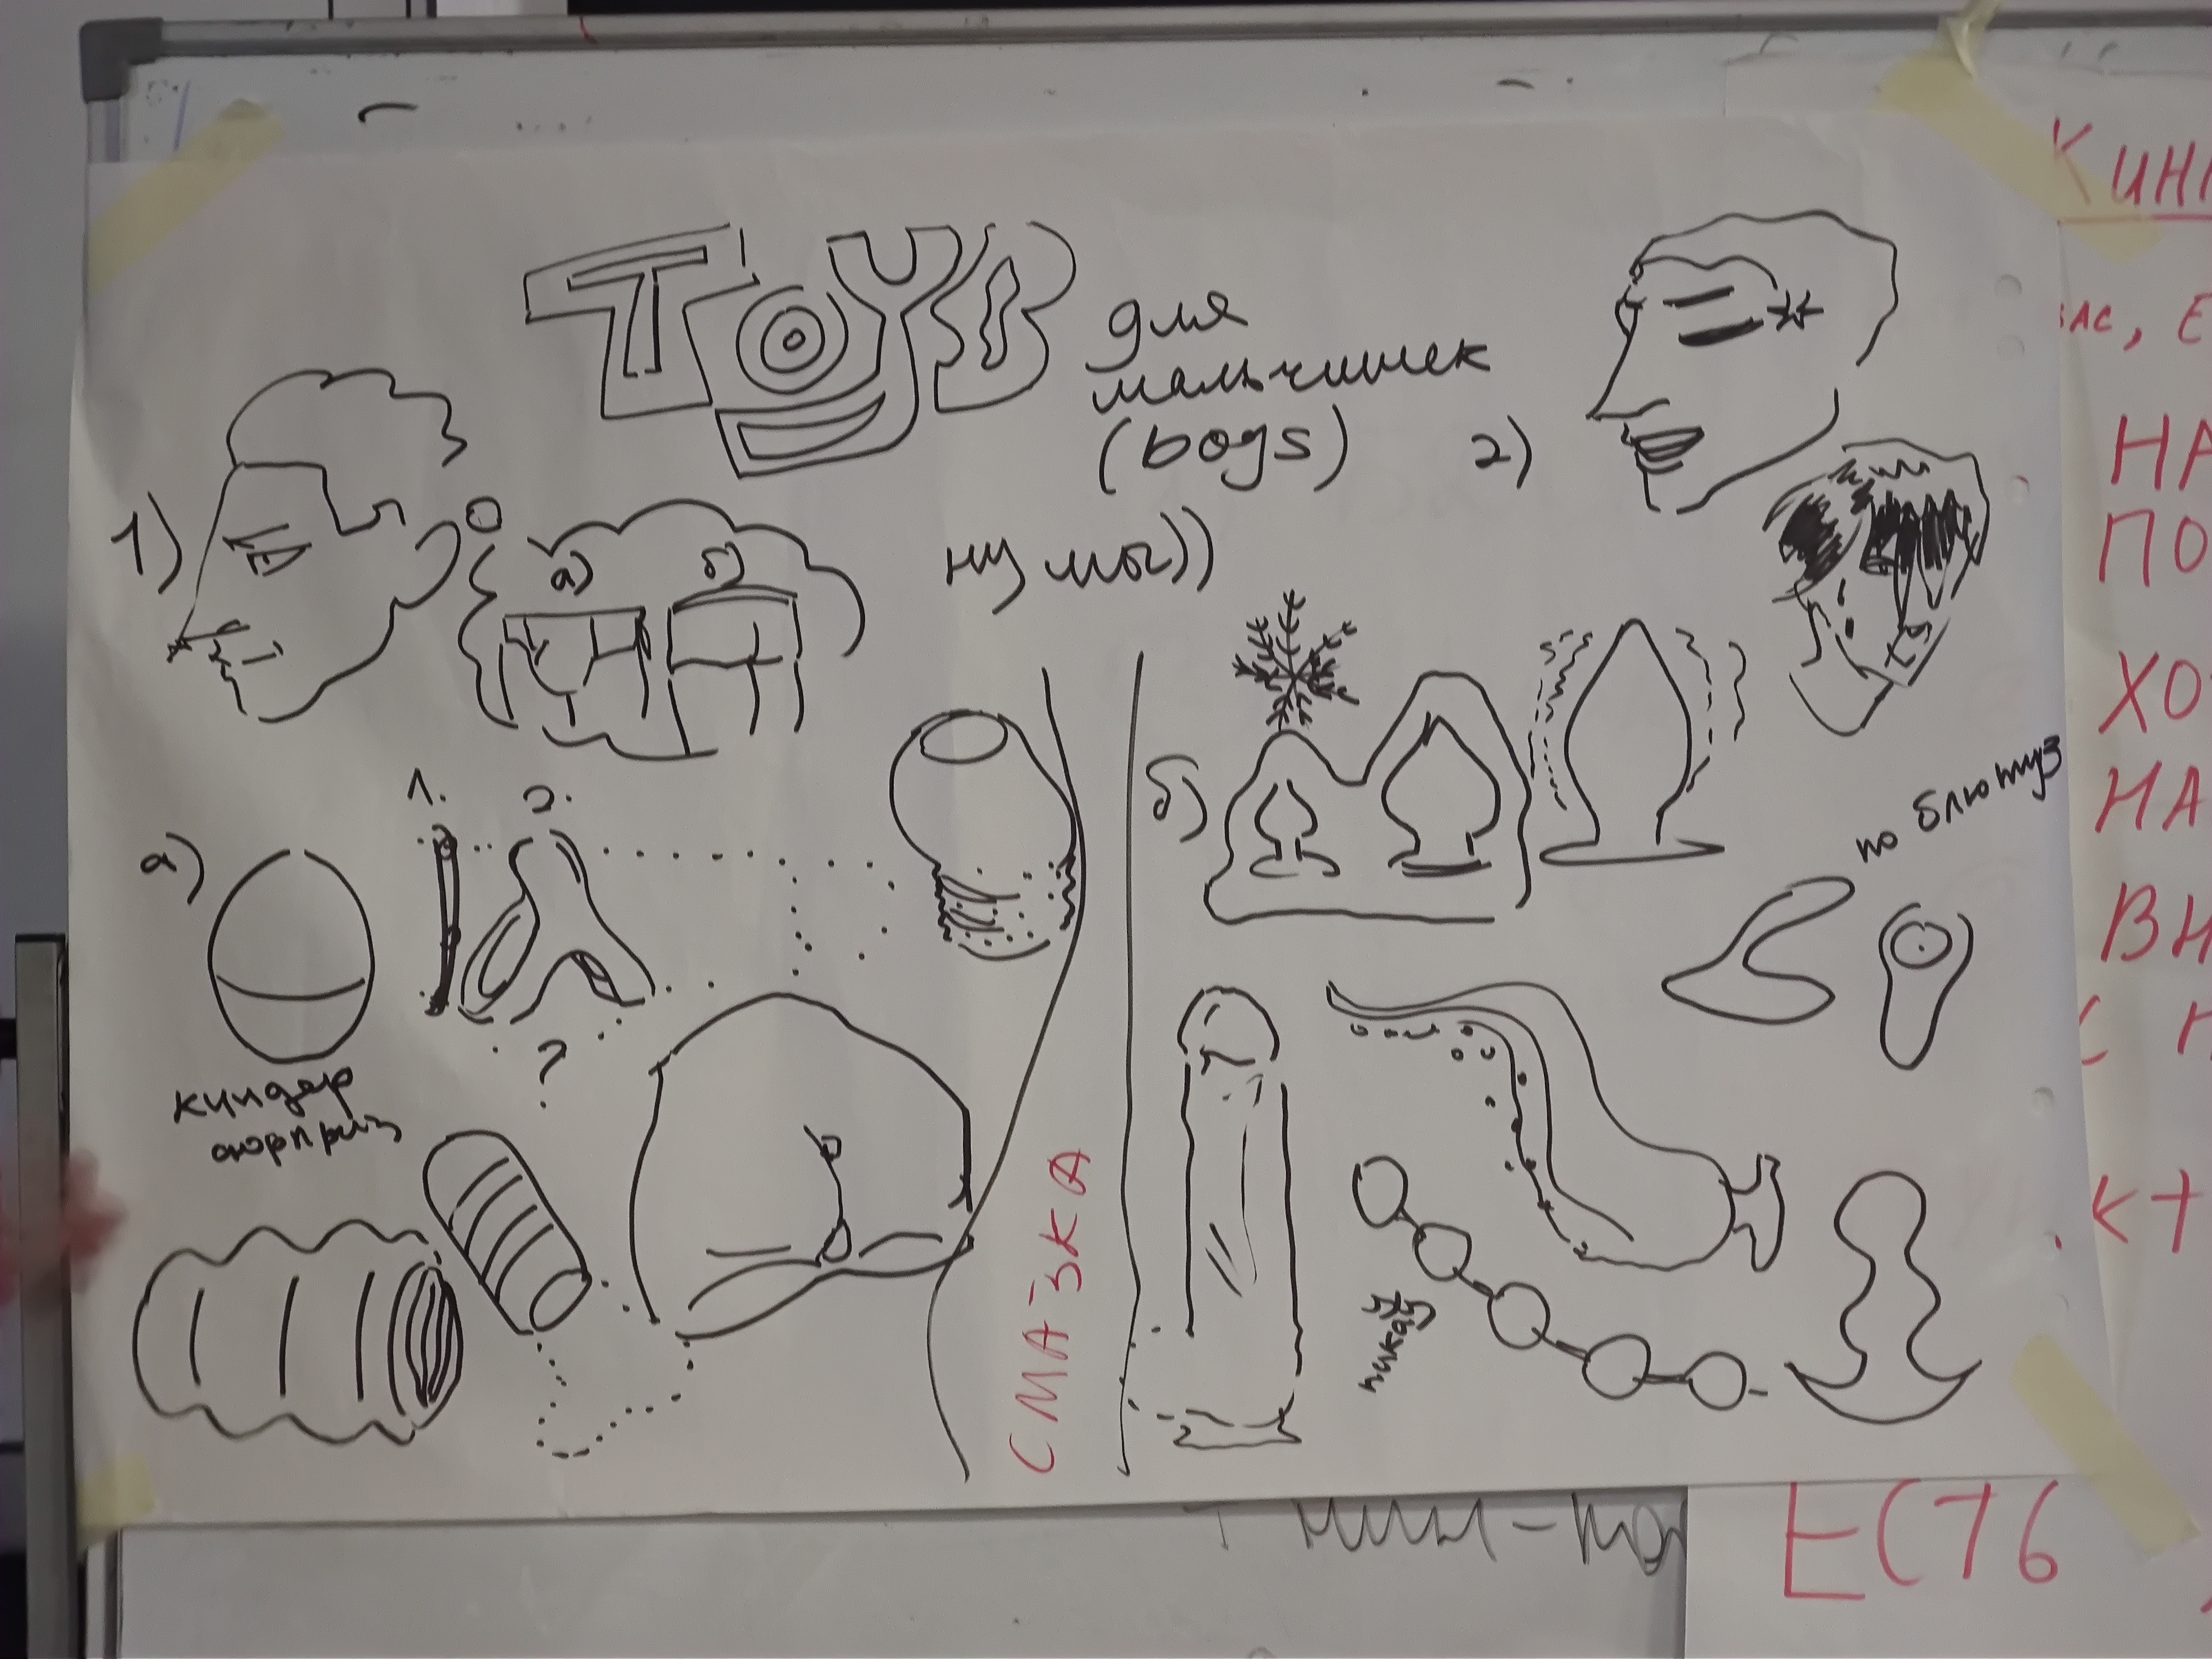 TOYS
для
мальчишек
(boys)
1)
2)
ну мы))
а)
б)
1.
2.
а)
?
киндер
сюрприз
СМАЗКА
б)
по блютуз
КИН
АС, Е
НА
ПО
ХО
НА
ВН
С Н
КТ
ЕСТЬ